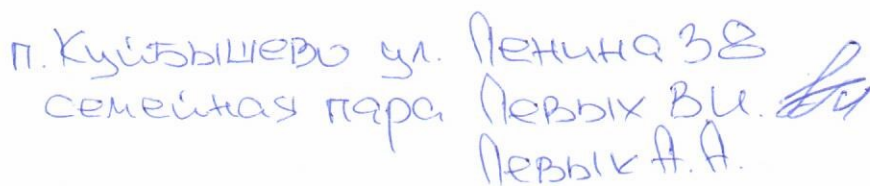 п. Куйбышево ул. Ленина 38
семейная пара Левых В.И.
Левых А.А.